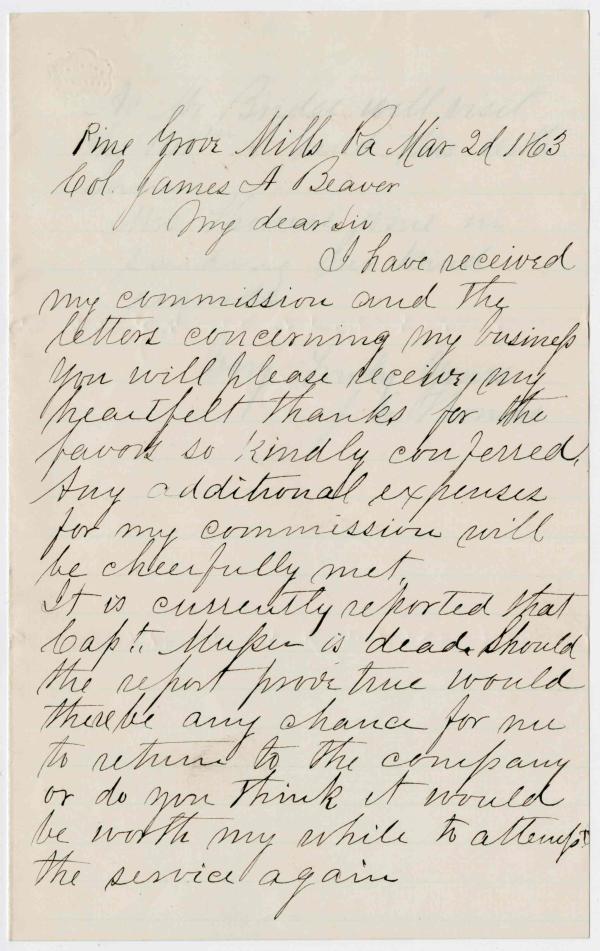 Pine Grove Mills Pa Mar 2d 1863
Col. James A Beaver
My dear Sir
I have received
my commission and the
letters concerning my business
You will please receive my
heartfelt thanks for the
favors so kindly conferred.
Any additional expenses
for my commission will
be cheerfully met.
It is currently reported that
Capt. Musser is dead. Should
the report prove true would
there be any chance for me
to return to the company
or do you think it would
be worth my while to attempt
the service again